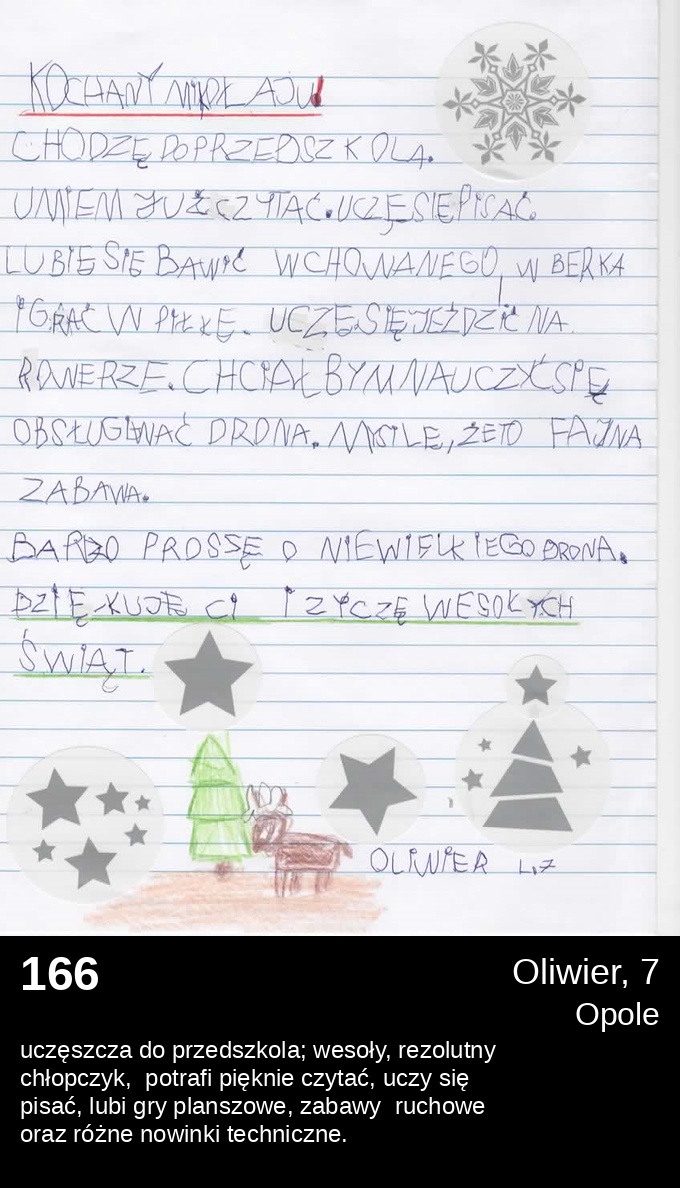 KOCHANY MIKOŁAJU!
CHODZĘ DO PRZEDSZKOLA.
UMIEM JUŻ CZYTAĆ. UCZĘ SIĘ PISAĆ.
LUBIĘ SIĘ BAWIĆ W CHOWANEGO, W BERKA
I GRAĆ W PIŁKĘ. UCZĘ SIĘ JEŹDZIĆ NA
ROWERZE. CHCIAŁBYM NAUCZYĆ SIĘ
OBSŁUGIWAĆ DRONA. MYŚLĘ, ŻE TO FAJNA
ZABAWA.
BARDZO PROSSĘ O NIEWIELKIEGO DRONA.
DZIĘKUJĘ CI I ŻYCZĘ WESOŁYCH
ŚWIĄT.
OLIWIER L.7
166
Oliwier, 7
Opole
uczęszcza do przedszkola; wesoły, rezolutny
chłopczyk, potrafi pięknie czytać, uczy się
pisać, lubi gry planszowe, zabawy ruchowe
oraz różne nowinki techniczne.